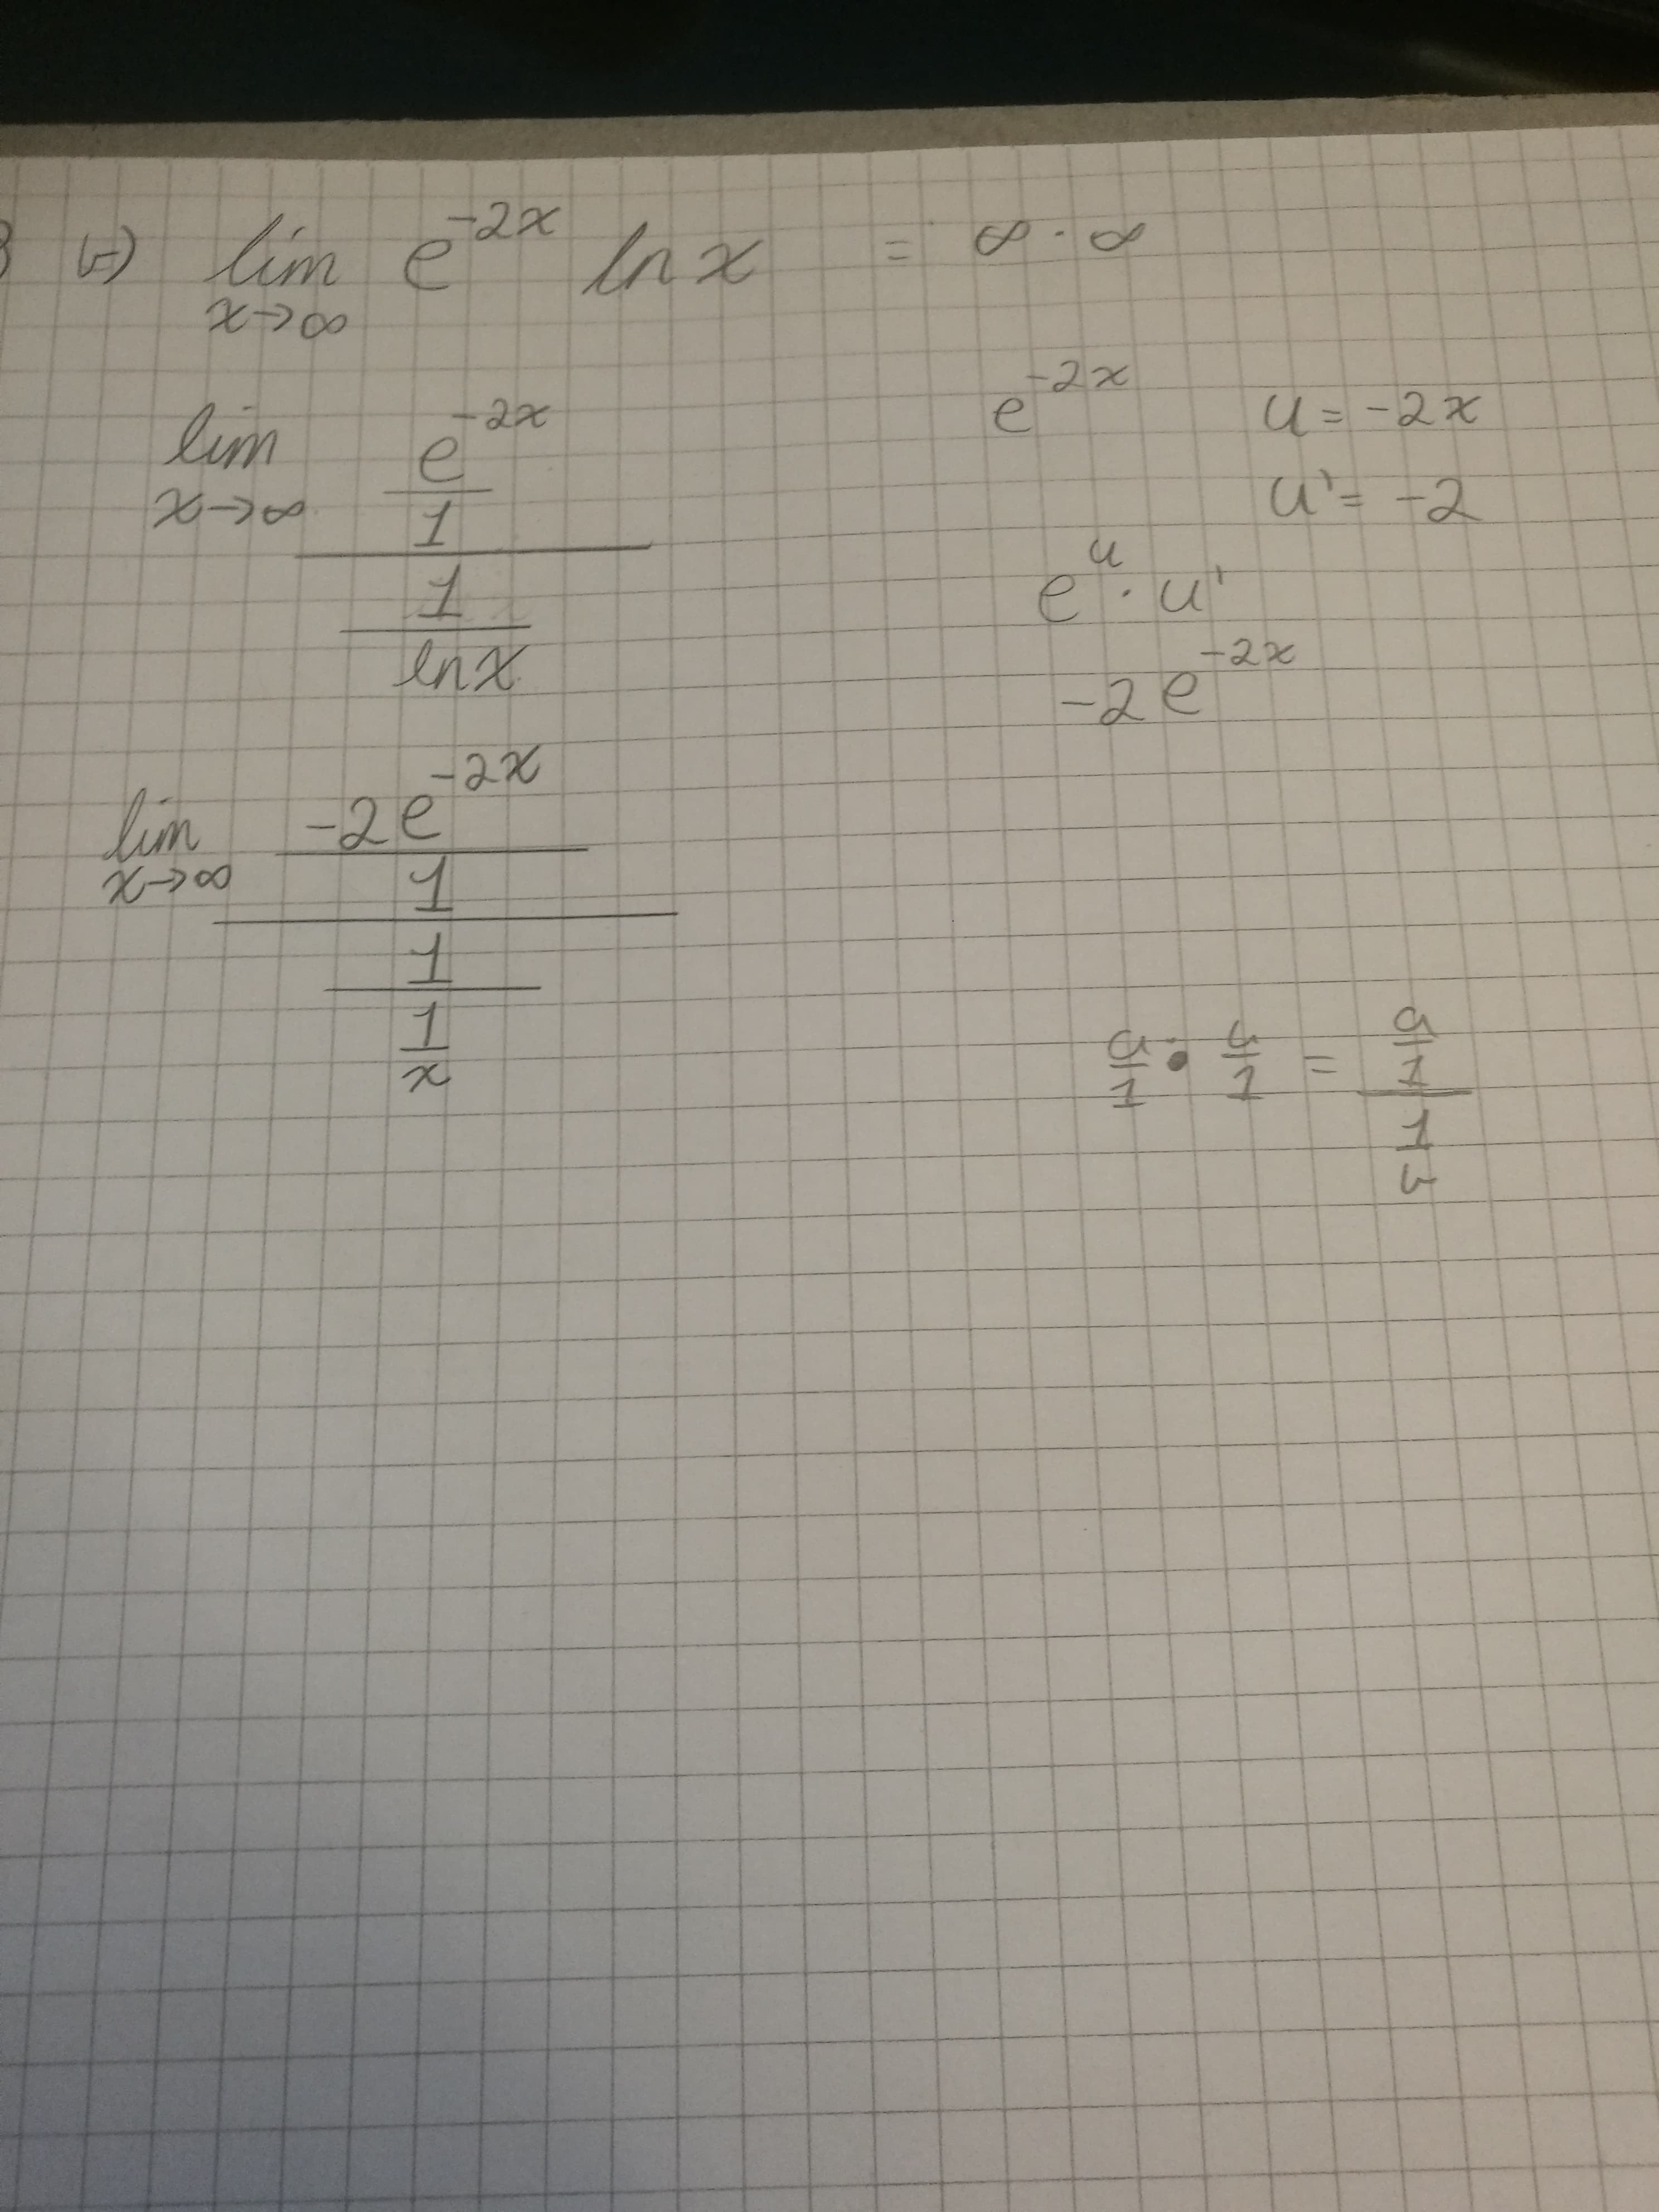 b) lim e^{-2x} ln x = ∞ · ∞
x→∞
lim_{x→∞} \frac{\frac{e^{-2x}}{1}}{\frac{1}{ln x}}
e^{-2x} u = -2x
u' = -2
e^u · u'
-2e^{-2x}
lim_{x→∞} \frac{\frac{-2e^{-2x}}{1}}{\frac{1}{\frac{1}{x}}}
\frac{a}{1} · \frac{b}{1} = \frac{\frac{a}{1}}{\frac{1}{b}}